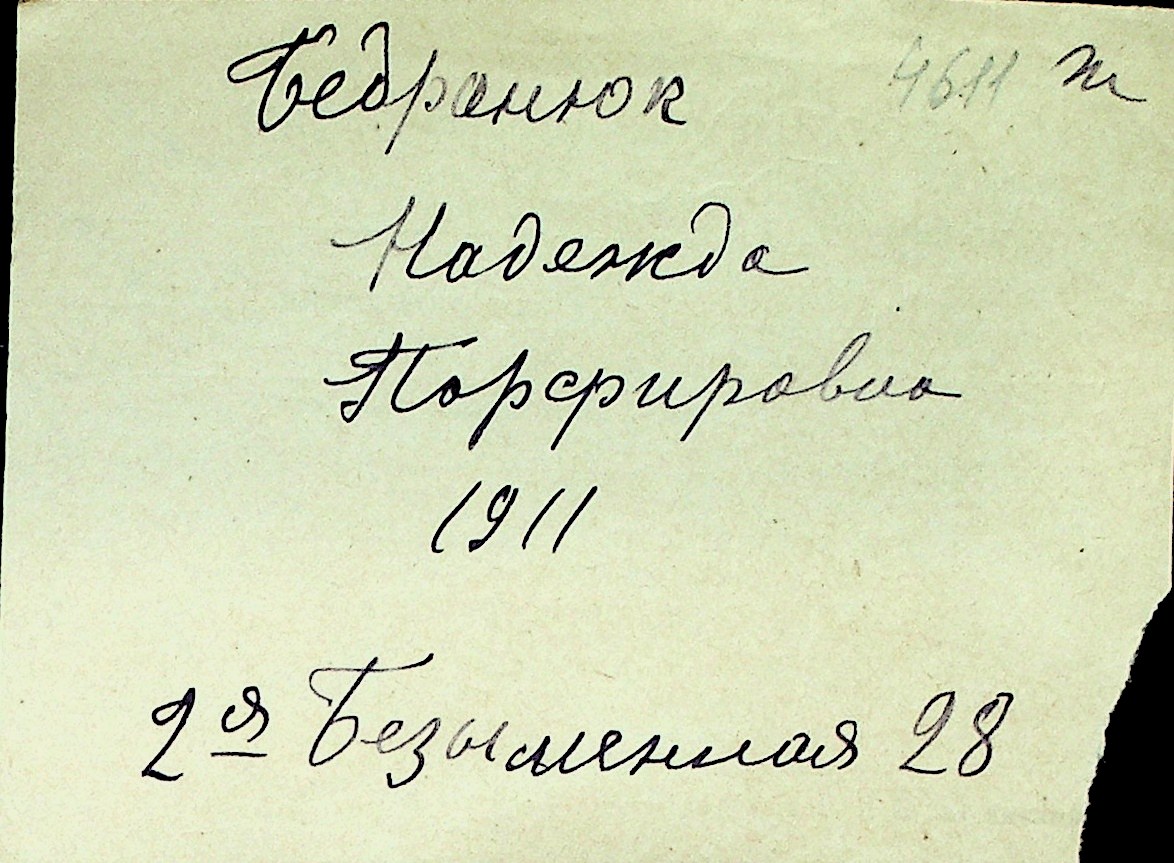 Бедранюк 4611 ж
Надежда
Порфировна
1911
2я Безыменная 28